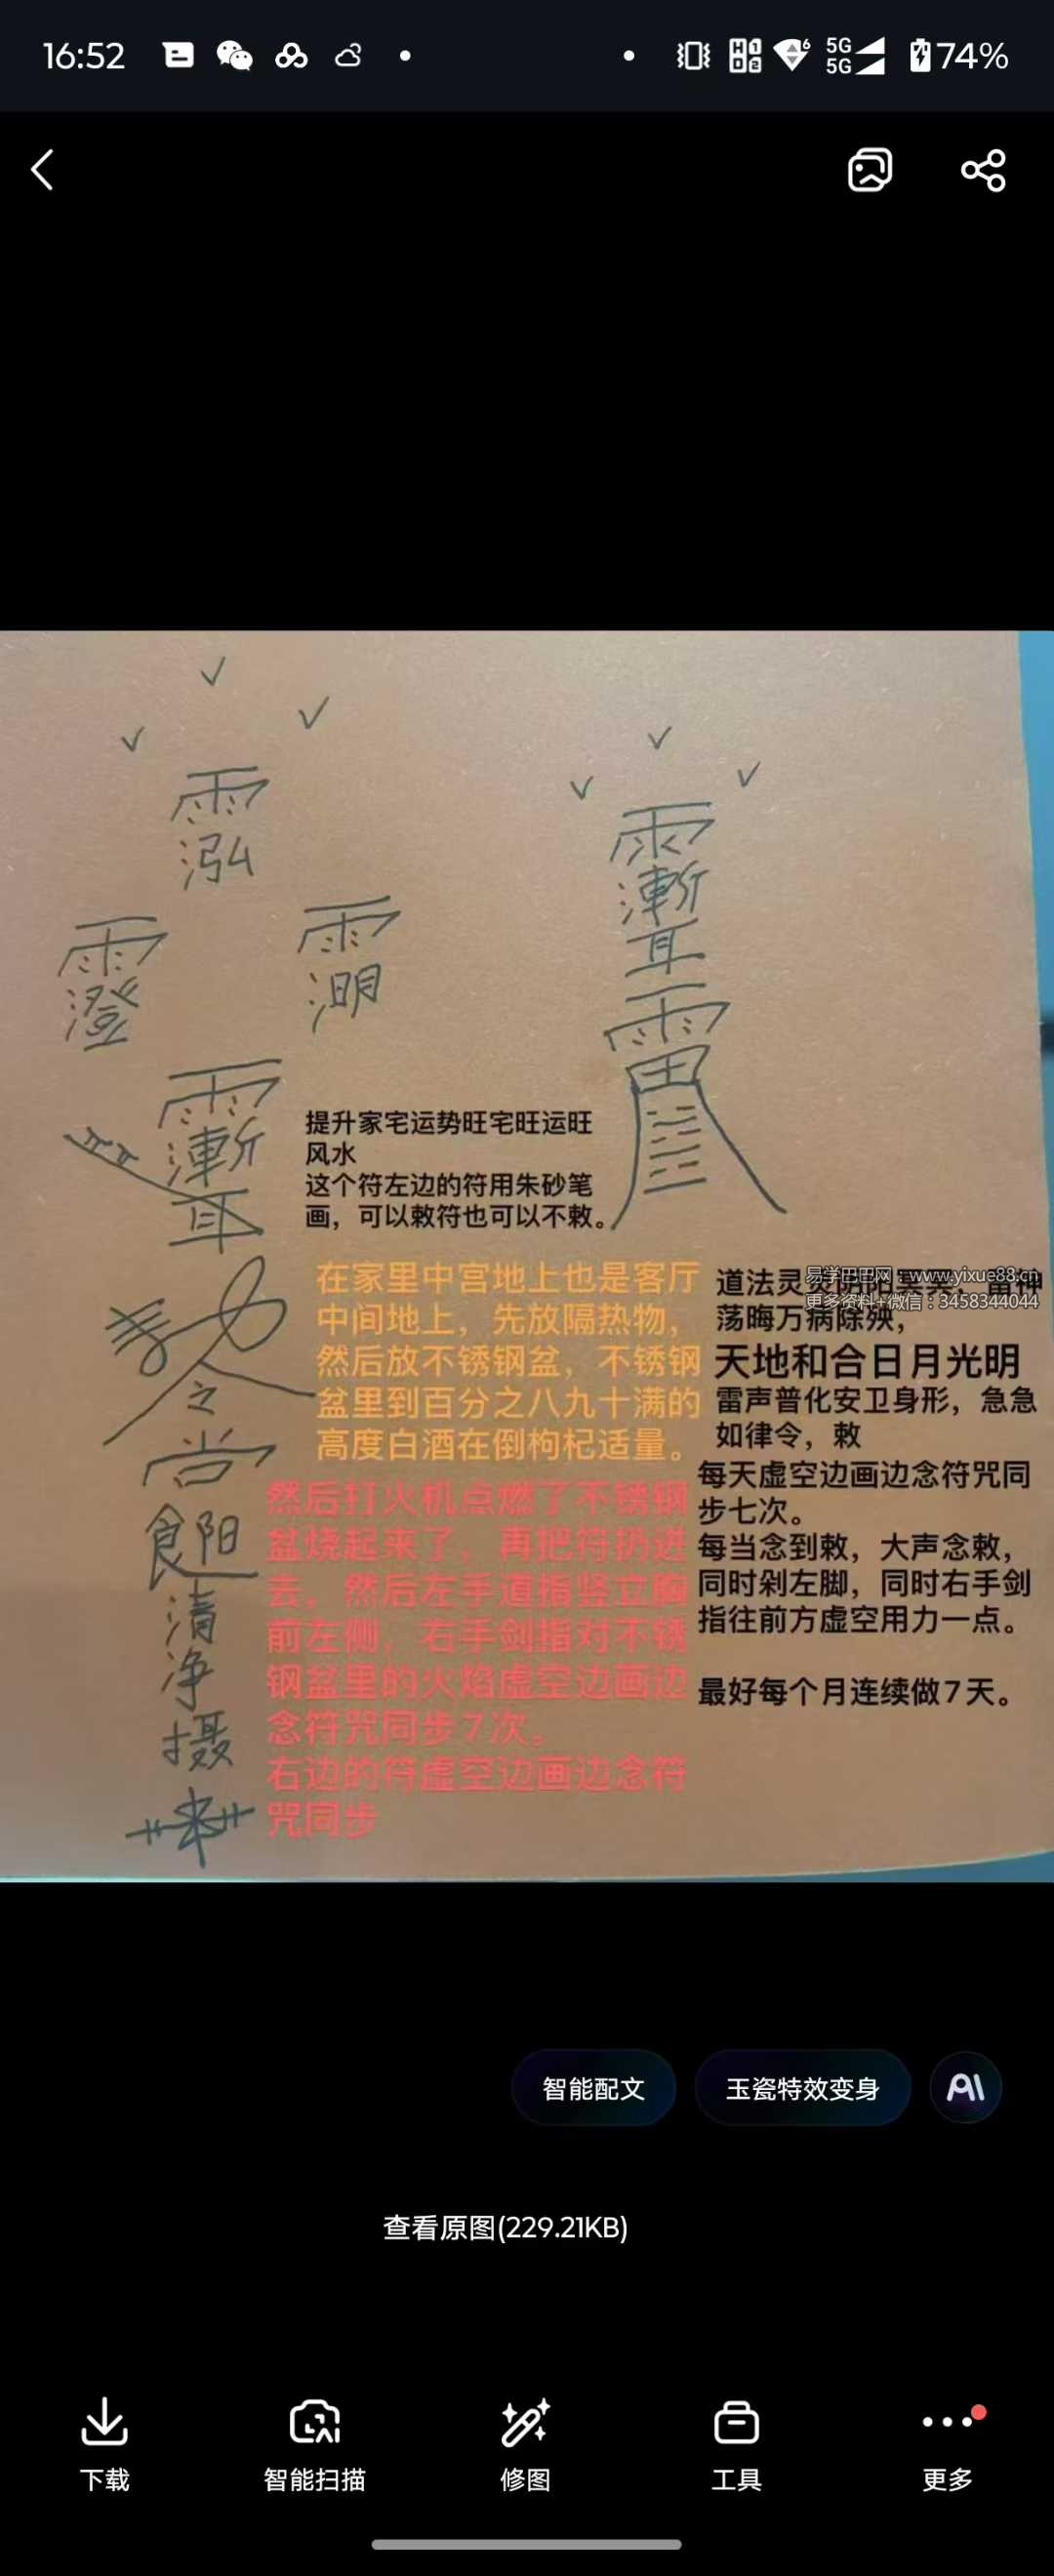 16:52
5G
5G
74%
雨
泓
雨
澄
雨
漸
耳
雨
漸
耳
雨
田
提升家宅运势旺宅旺运旺
风水
这个符左边的符用朱砂笔
画，可以敕符也可以不敕。
在家里中宫地上也是客厅
中间地上，先放隔热物，
然后放不锈钢盆，不锈钢
盆里到百分之八九十满的
高度白酒在倒枸杞适量。
然后打火机点燃了不锈钢
盆烧起来了，再把符扔进
去，然后左手道指竖立胸
前左侧，右手剑指对不锈
钢盆里的火焰虚空边画边
念符咒同步7次。
右边的符虚空边画边念符
咒同步
之
尚
阳
清
净
摄
来
道法灵灵阴阳冥冥，雷神
易学巴巴网：www.yixue88.cn
更多资料+微信：3458344044
荡晦万病除殃，
天地和合日月光明
雷声普化安卫身形，急急
如律令，敕
每天虚空边画边念符咒同
步七次。
每当念到敕，大声念敕，
同时剁左脚，同时右手剑
指往前方虚空用力一点。
最好每个月连续做7天。
智能配文
玉瓷特效变身
AI
查看原图(229.21KB)
下载
智能扫描
修图
工具
更多